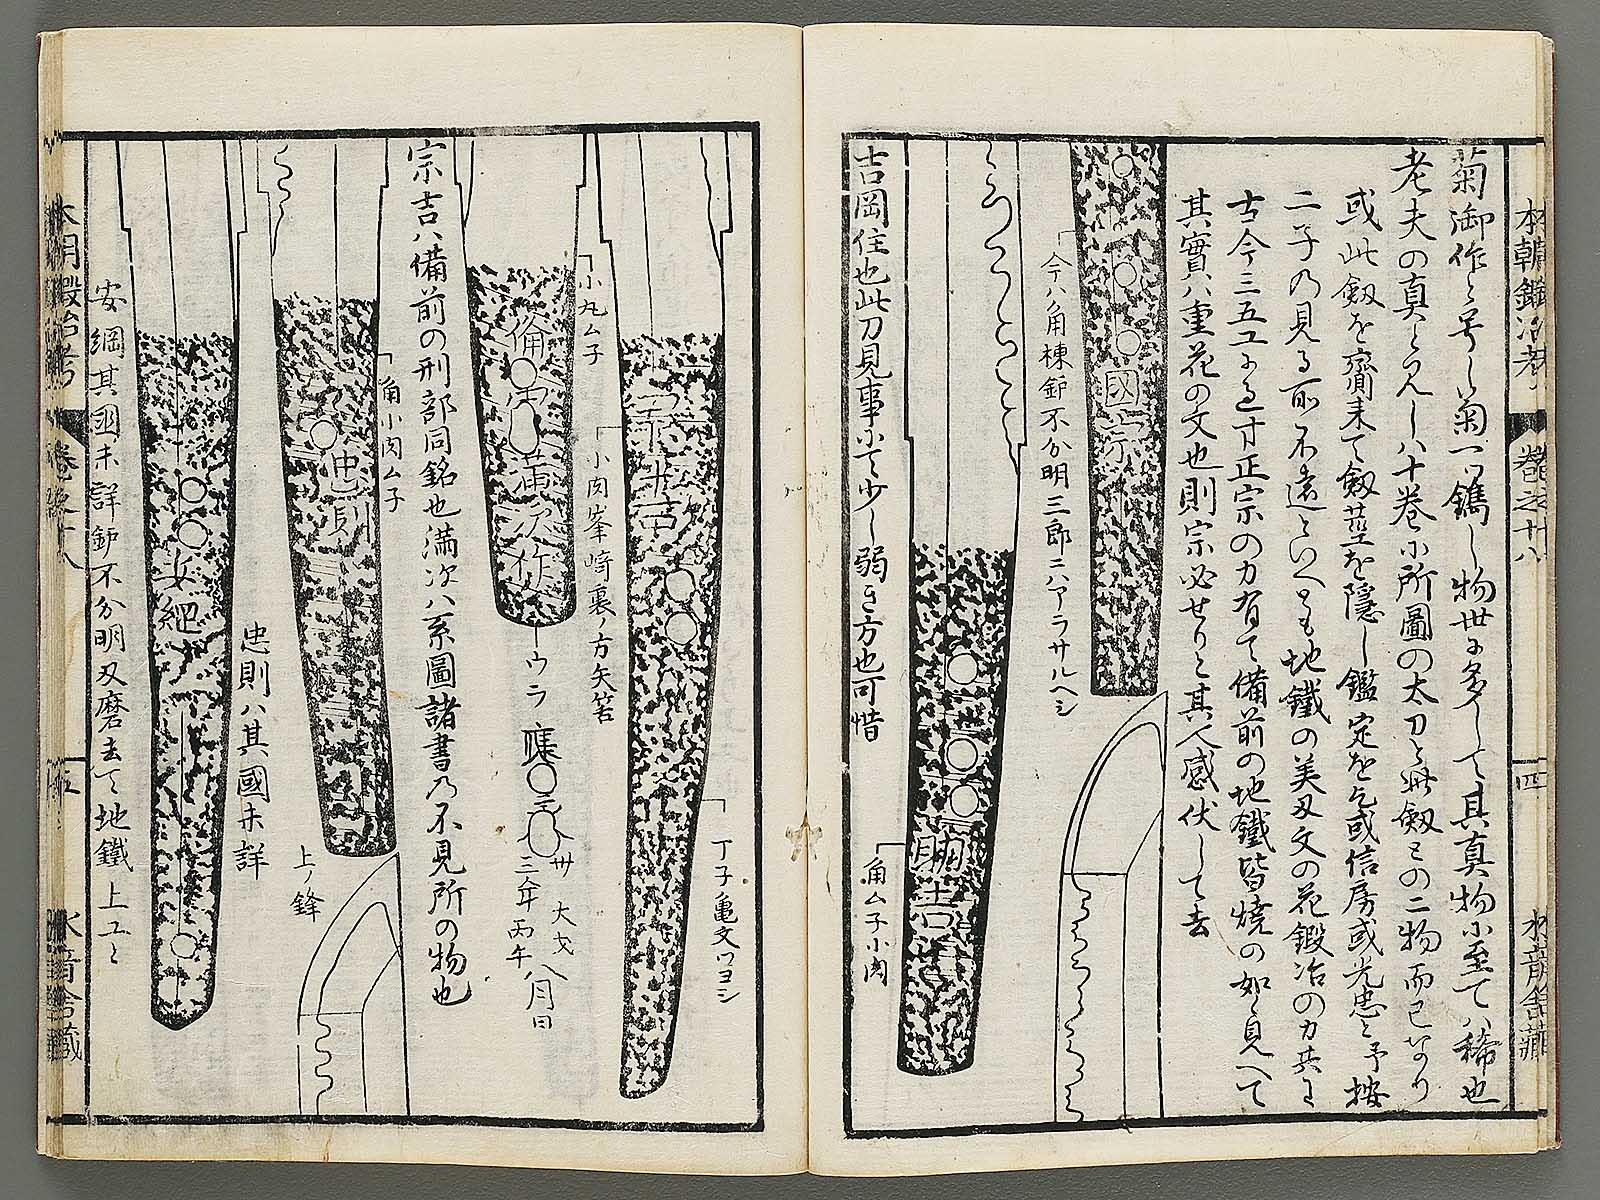 本朝鍛冶考
巻之十八
四
水音舎蔵
菊御作と号し菊一ツ鐫し物世に多くして其真物に至てハ稀也
老夫の真とらんしハ十巻に所圖の太刀と此劔との二物而已なり
或此劔を齎来て劔莖を隠し鑑定を乞或信房或光忠と予按
二子の見る所不遠といへとも地鐵の美刃文の花鍛冶の力其
古今三五工に過す正宗の力有て備前の地鐵皆焼の如く見へて
其實ハ重花の文也則宗必せりと其人感伏して去
國
今ハ角棟鈩不分明三郎ニハアラサルヘシ
助吉
角ムネ小肉
吉岡住也此刀見事にて少し弱き方也可惜
宗吉
丁子亀文ツヨシ
小肉峯﨑裏ノ方矢筈
小丸ムネ
備
満次作
ウラ
三年丙午
八月日
宗吉ハ備前の刑部同銘也満次ハ系圖諸書乃不見所の物也
忠則
角小肉ムネ
上ノ鋒
忠則ハ其國未詳
安縄
安綱其國未詳鈩不分明刃磨去て地鐵上工ミ
本朝鍛冶考
巻之十八
五
水音舎蔵